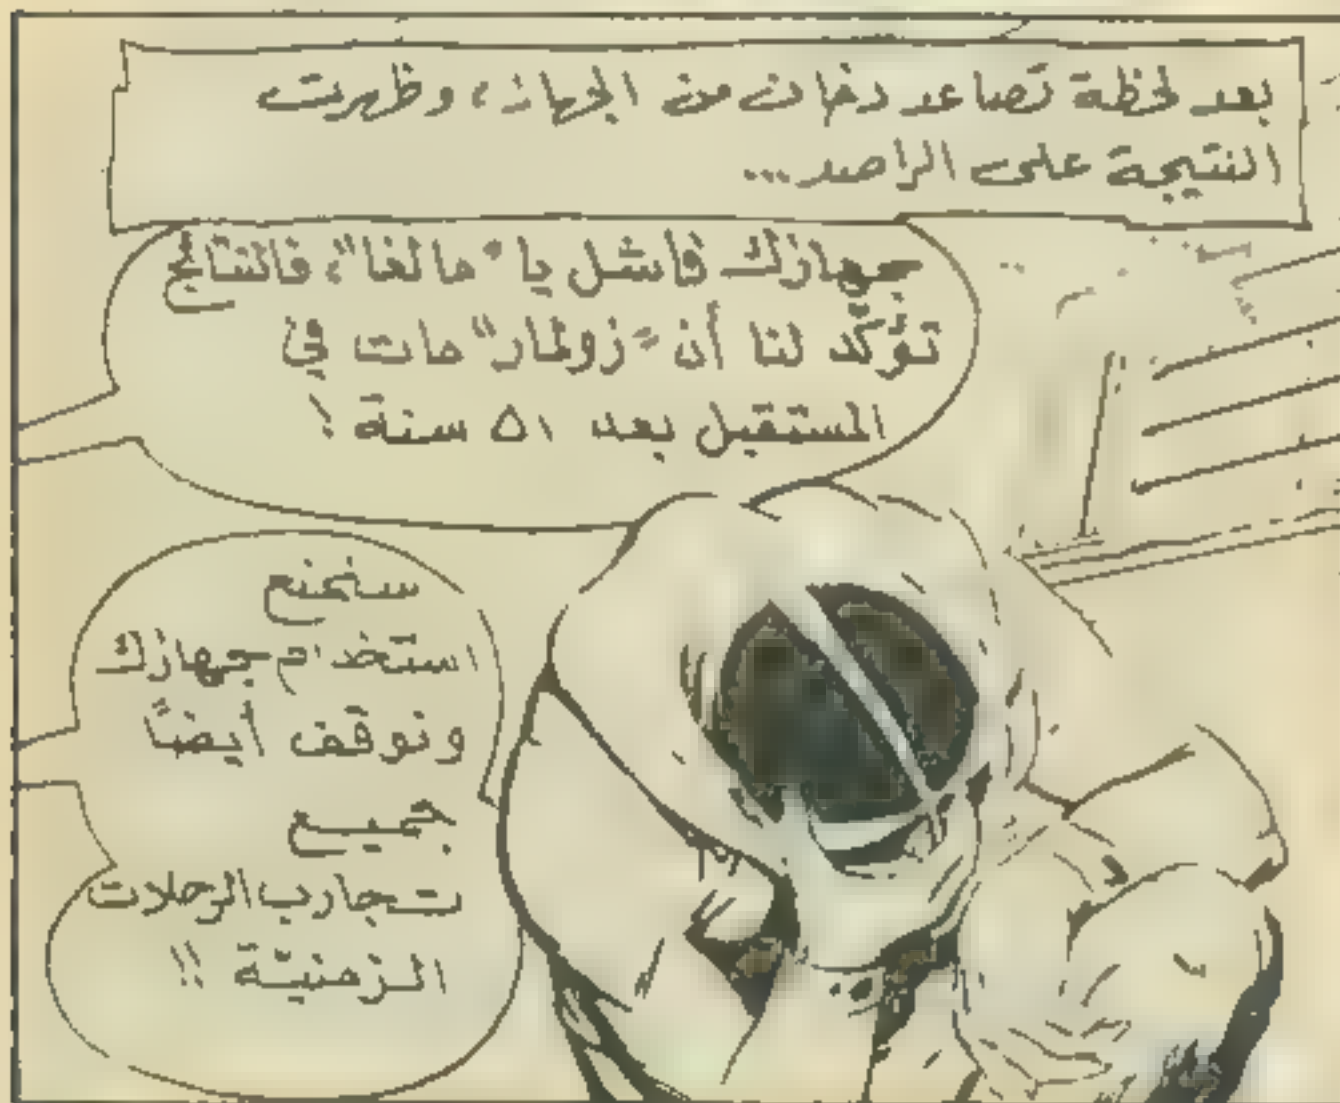 بعد لحظة تصاعد دخان من الجهاز، وظهرت
النتيجة على الراصد...
جهازك فاشل يا "مالغا"، فالنتائج
تؤكّد لنا أن "زولمار" مات في
المستقبل بعد ٥١ سنة !
سنمنع
استخدام جهازك
ونوقف أيضاً
جميع
تجارب الرحلات
الزمنيّة !!